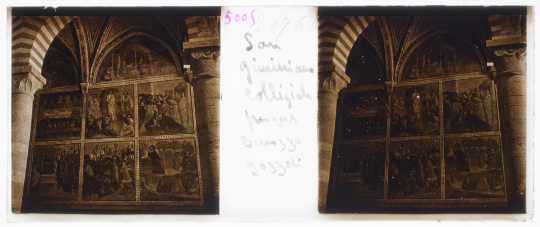 5005
San
gimignano
Collégiale
fresques
Benozzo
gozzoli